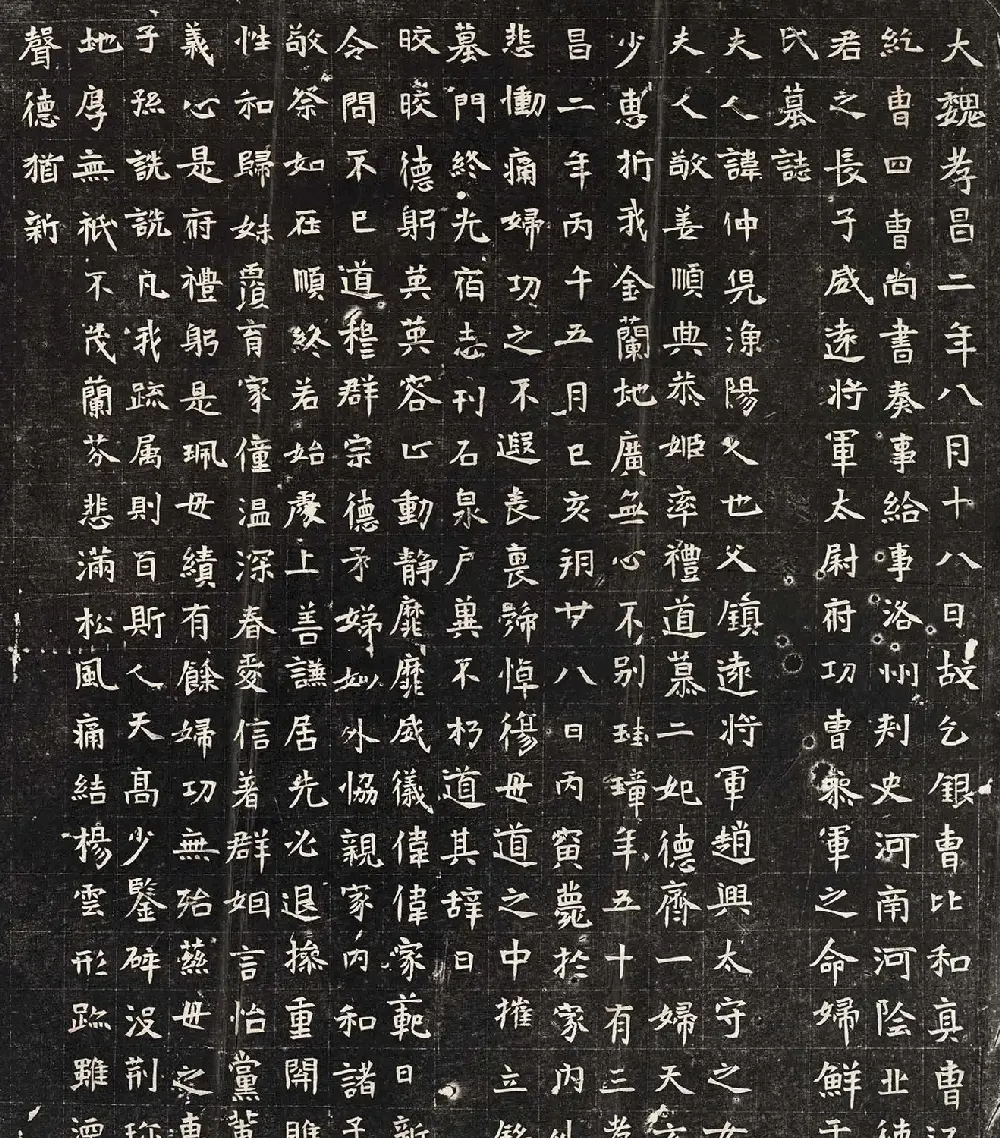 大魏孝昌二年八月十八日故乞銀曹比和真曹
紇曹四曹尚書奏事給事洛州刾史河南河陰丘
君之長子威遠将軍太尉府功曹叅軍之命婦鮮于
氏墓誌
夫人諱仲児漁陽人也父鎮遠将軍趙興太守之女
夫人敬善順典恭姬率禮道慕二妃德齊一婦天
少惠折我金蘭地廣無心不别珪璋年五十有三孝
昌二年丙午五月己亥朔廿八日丙寅薨於家内外
悲慟痛婦功之不遐喪喪號悼傷毋道之中摧立銘
墓門終光宿志刊石泉户冀不朽道其辞曰
晈晈德躬英英容止動静靡靡威儀偉偉家範日新
令問不已道穆群宗德矛娣姒外恊親家内和諸子
敬祭如在順終若始處上善謙居先必退撡重開睢
性和歸妹覆育家僮温深春愛信著群姻言怡黨輩
義心是府禮躬是珮毋績有餘婦功無殆蒸毋之
子孫詵詵凡我疏属則百斯人天高少鑒碎没荊珎
地厚無祇不茂蘭芬悲滿松風痛結楊雲形跡雖湮
聲德猶新